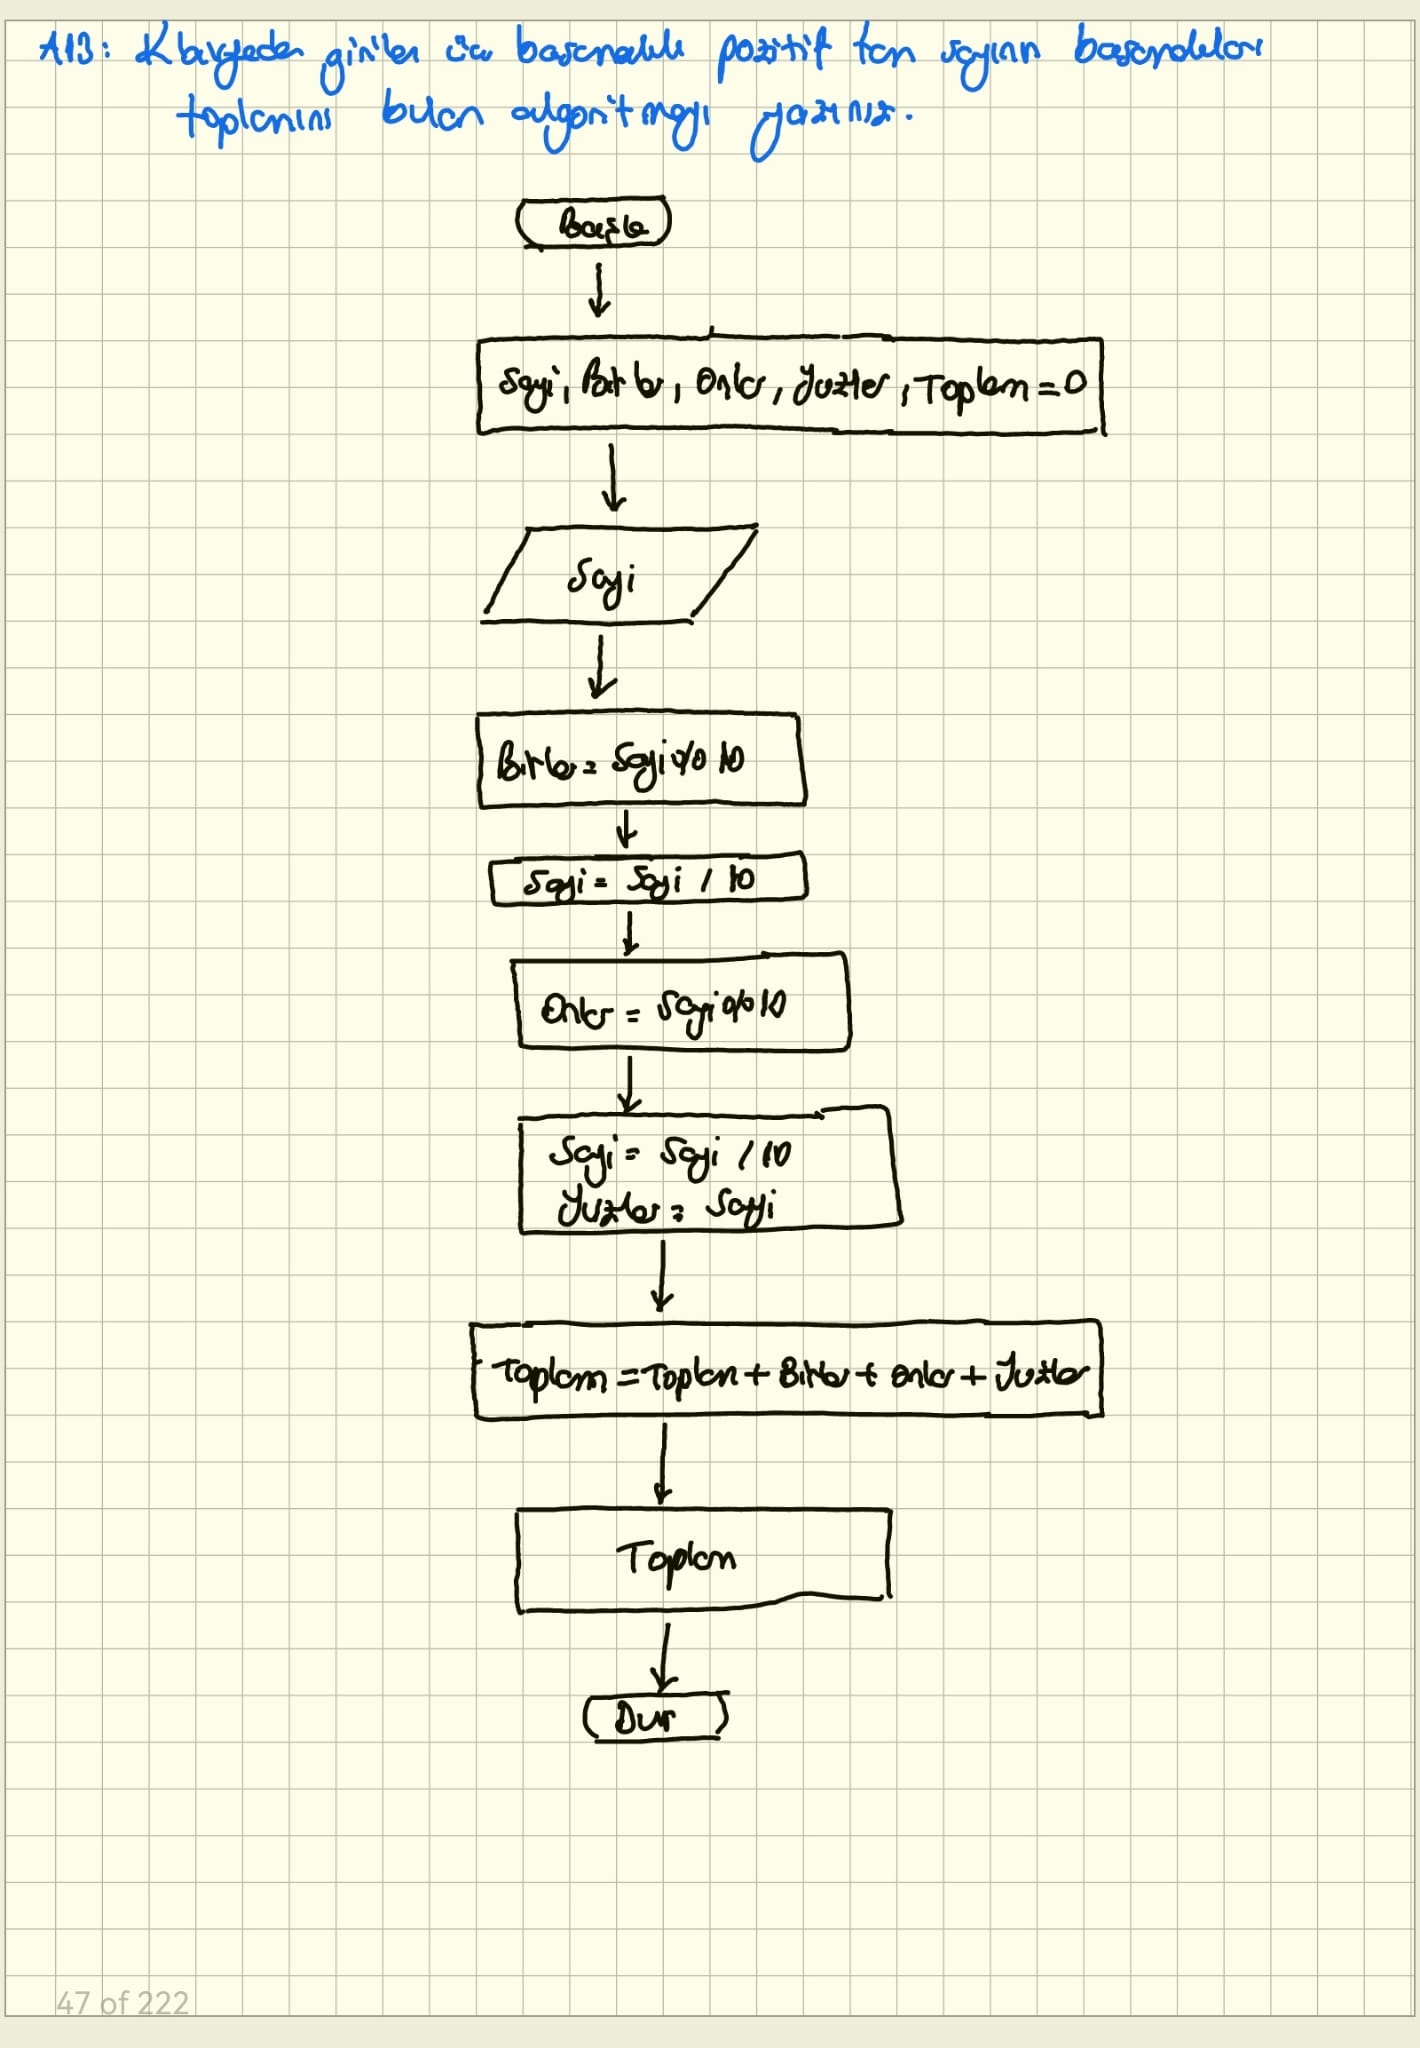 A13: Klavyeden girilen üç basamaklı pozitif tam sayının basamakları
toplamını bulan algoritmayı yazınız.
Başla
Sayi, Birler, Onlar, Yuzler, Toplam = 0
Sayi
Birler = Sayi % 10
Sayi = Sayi / 10
Onlar = Sayi % 10
Sayi = Sayi / 10
Yuzler = Sayi
Toplam = Toplam + Birler + Onlar + Yuzler
Toplam
Dur
47 of 222